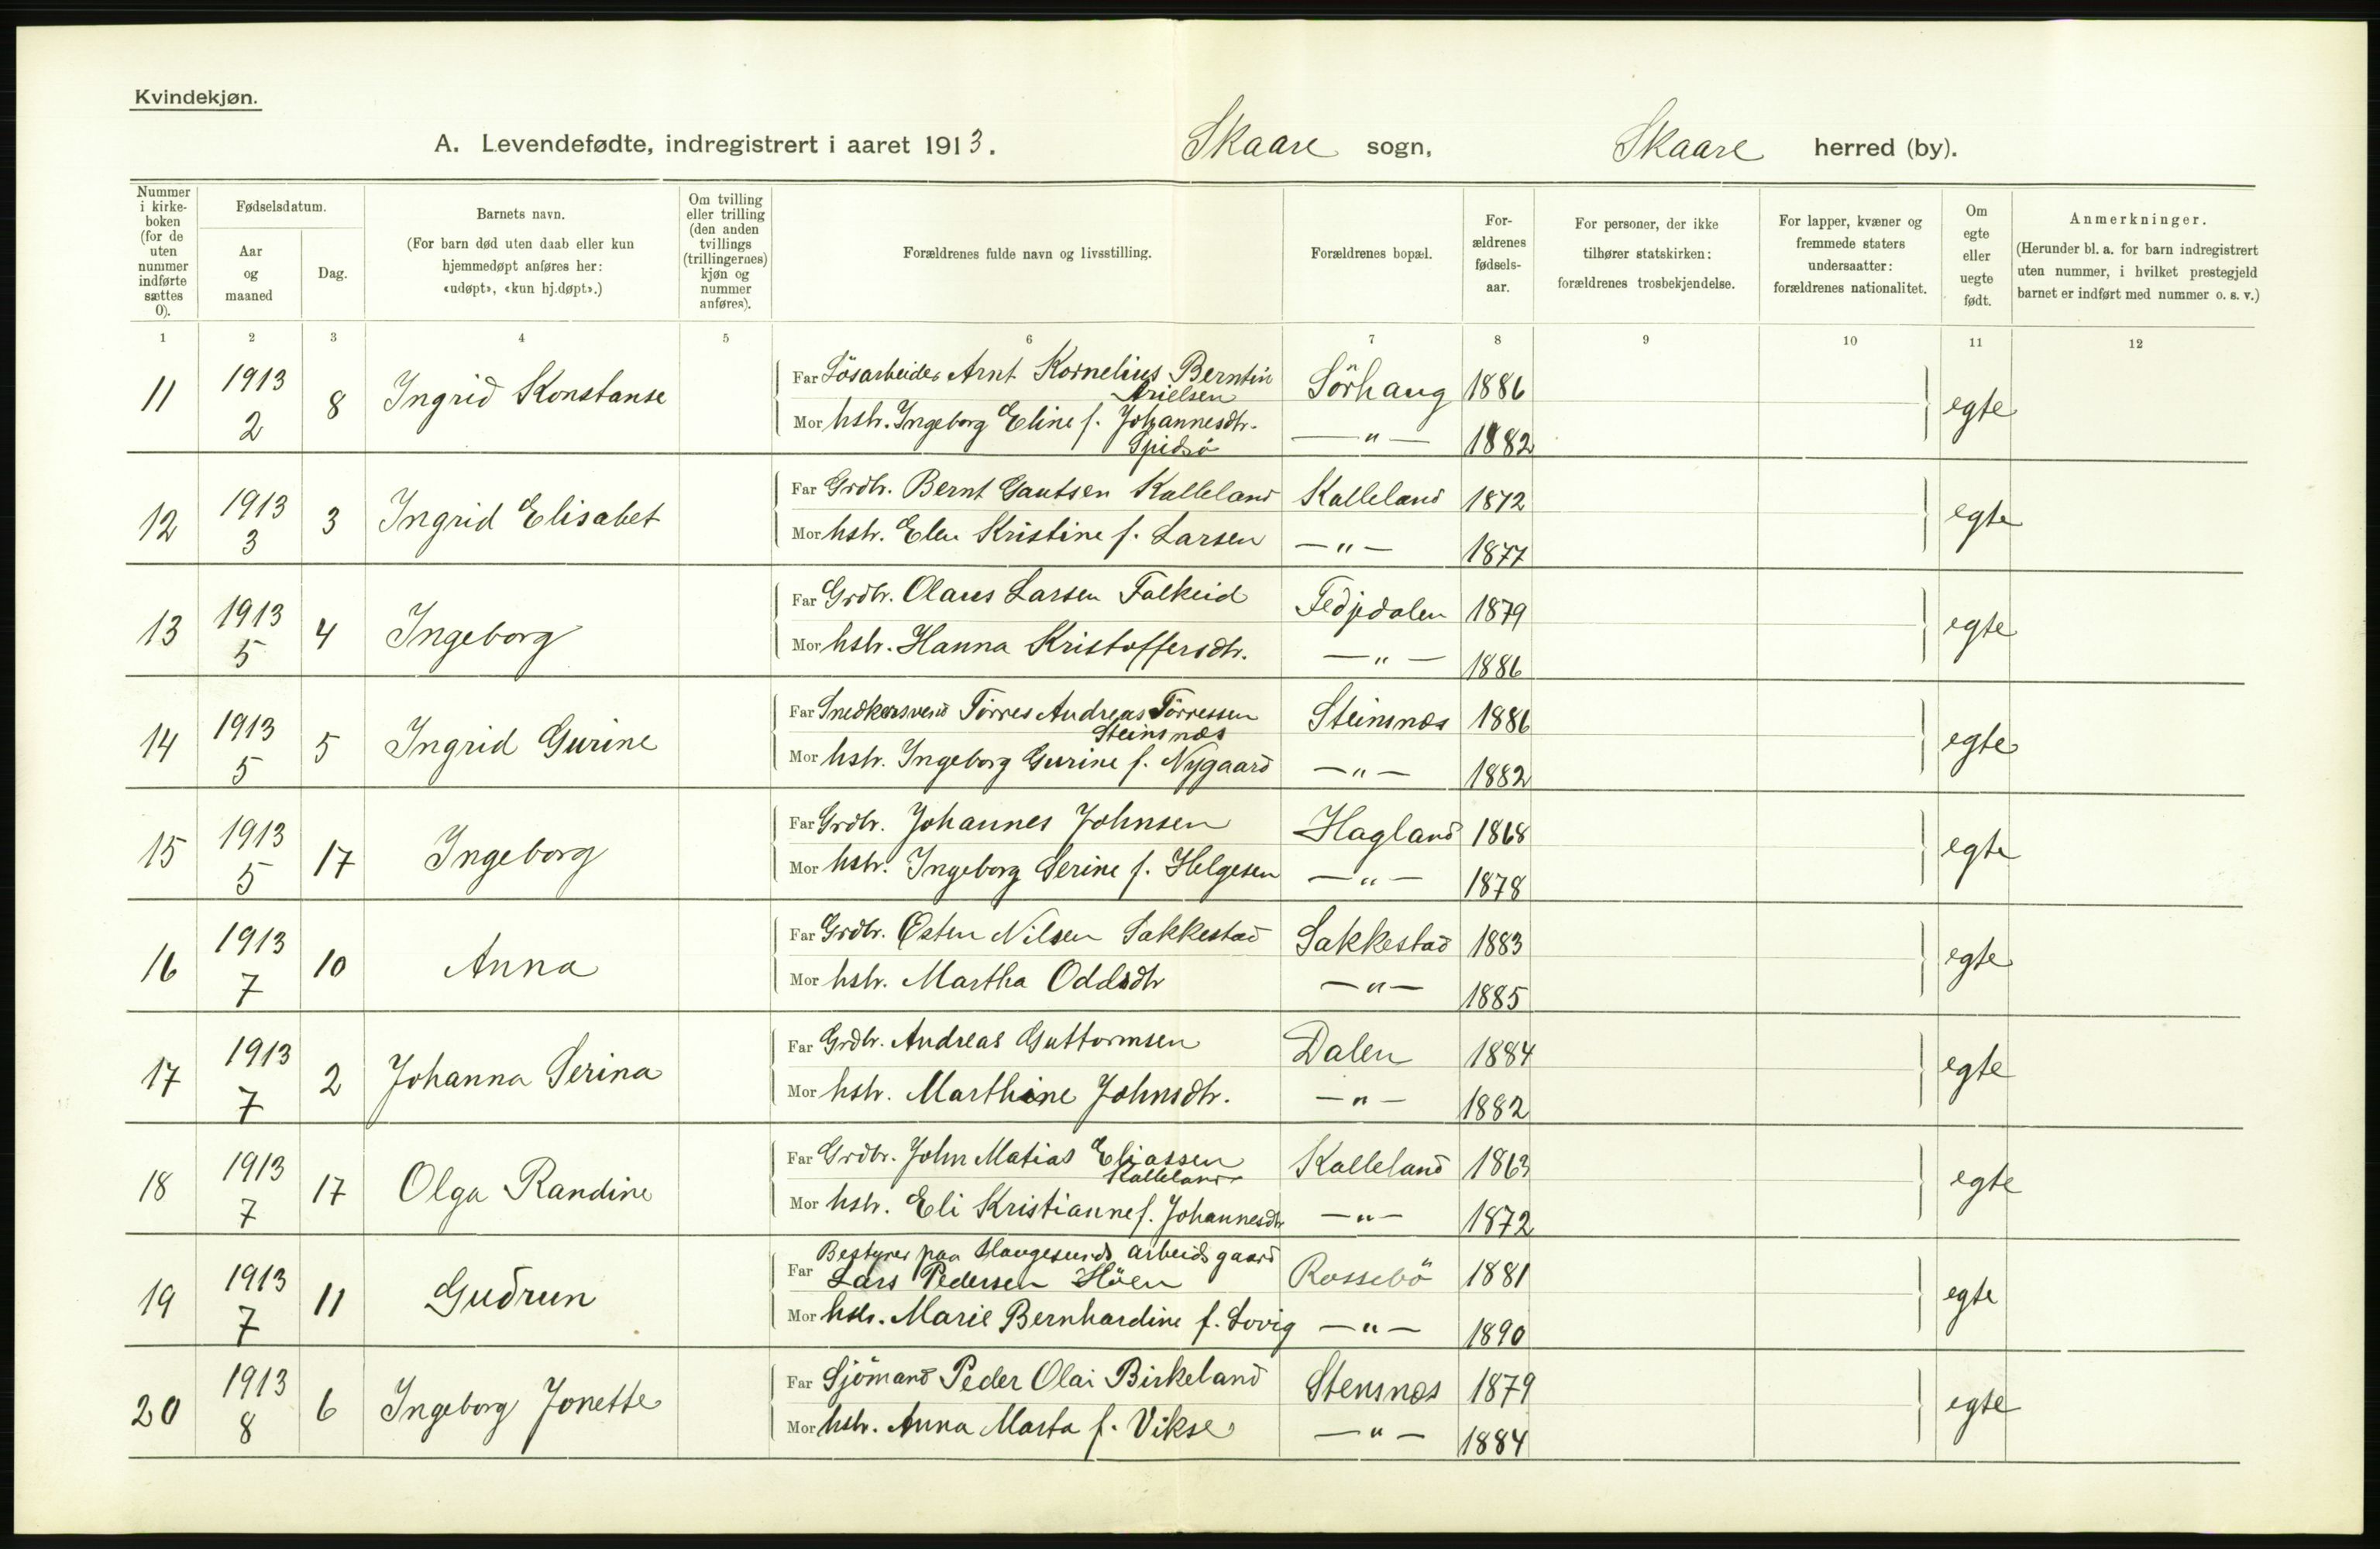 Kvindekjøn.
A. Levendefødte, indregistrert i aaret 1913. Skaare sogn, Skaare herred (by).
Nummer i kirke-boken (for de uten nummer indførte sættes 0).
Fødselsdatum.
Aar og maaned
Dag.
Barnets navn.
(For barn død uten daab eller kun hjemmedøpt anføres her: «udøpt», «kun hj.døpt».)
Om tvilling eller trilling (den anden tvillings (trillingernes) kjøn og nummer anføres).
Forældrenes fulde navn og livsstilling.
Forældrenes bopæl.
For-ældrenes fødsels-aar.
For personer, der ikke tilhører statskirken: forældrenes trosbekjendelse.
For lapper, kvæner og fremmede staters undersaatter: forældrenes nationalitet.
Om egte eller uegte født.
Anmerkninger.
(Herunder bl. a. for barn indregistrert uten nummer, i hvilket prestegjeld barnet er indført med nummer o. s. v.)
1 2 3 4 5 6 7 8 9 10 11 12
11 1913 2 8 Ingrid Konstanse
Far Lösarbeider Arnt Kornelius Berntin Arielsen Sörhaug 1886 egte
Mor hstr. Ingeborg Eline f. Johannesdtr. Spidsö —"— 1882
12 1913 3 3 Ingrid Elisabet
Far Grdbr. Bernt Gautsen Kalleland Kalleland 1872 egte
Mor hstr. Elen Kristine f. Larsen —"— 1877
13 1913 5 4 Ingeborg
Far Grdbr. Olaus Larsen Falkeid Fedjedalen 1879 egte
Mor hstr. Hanna Kristoffersdtr. —"— 1886
14 1913 5 5 Ingrid Gurine
Far Snedkersvend Törres Andreas Törressen Steinsnæs Steinsnæs 1886 egte
Mor hstr. Ingeborg Gurine f. Nygaard —"— 1882
15 1913 5 17 Ingeborg
Far Grdbr. Johannes Johnsen Hagland 1868 egte
Mor hstr. Ingeborg Serine f. Helgesen —"— 1878
16 1913 7 10 Anna
Far Grdbr. Östen Nilsen Sakkestad Sakkestad 1883 egte
Mor hstr. Martha Oddsdtr —"— 1885
17 1913 7 2 Johanna Serina
Far Grdbr. Andreas Guttormsen Dalen 1884 egte
Mor hstr. Marthine Johnsdtr. —"— 1882
18 1913 7 17 Olga Randine
Far Grdbr. John Matias Eliassen Kalleland Kalleland 1863 egte
Mor hstr. Eli Kristianne f. Johannesdtr —"— 1872
19 1913 7 11 Gudrun
Far Bestyrer paa Haugesunds arbeidsgaard Lars Pedersen Höen Rossebö 1881 egte
Mor hstr. Marie Bernhardine f. Lovig —"— 1890
20 1913 8 6 Ingeborg Jonette
Far Sjömand Peder Olai Birkeland Stensnæs 1879 egte
Mor hstr. Anna Marta f. Vikse —"— 1884